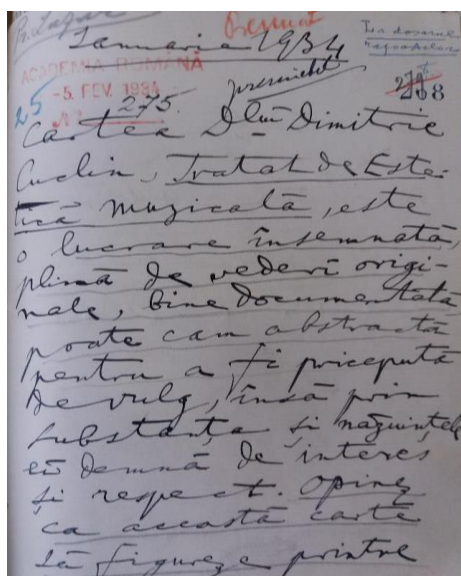 Pr. Lazăr
Premiat
La dosarul
rapoartelor
Ianuarie 1934
ACADEMIA ROMÂNĂ
premiabil
25
-5. FEV. 1934
No 275.
208
Cartea Dlui Dimitrie
Cuclin, Tratat de Este-
tică muzicală, este
o lucrare însemnată,
plină de vederi origi-
nale, bine documentată
poate cam abstractă
pentru a fi pricepută
de vulg, însă prin
substanța și năzuințele
ei demnă de interes
și respect. Opinez
ca această carte
să figureze printre